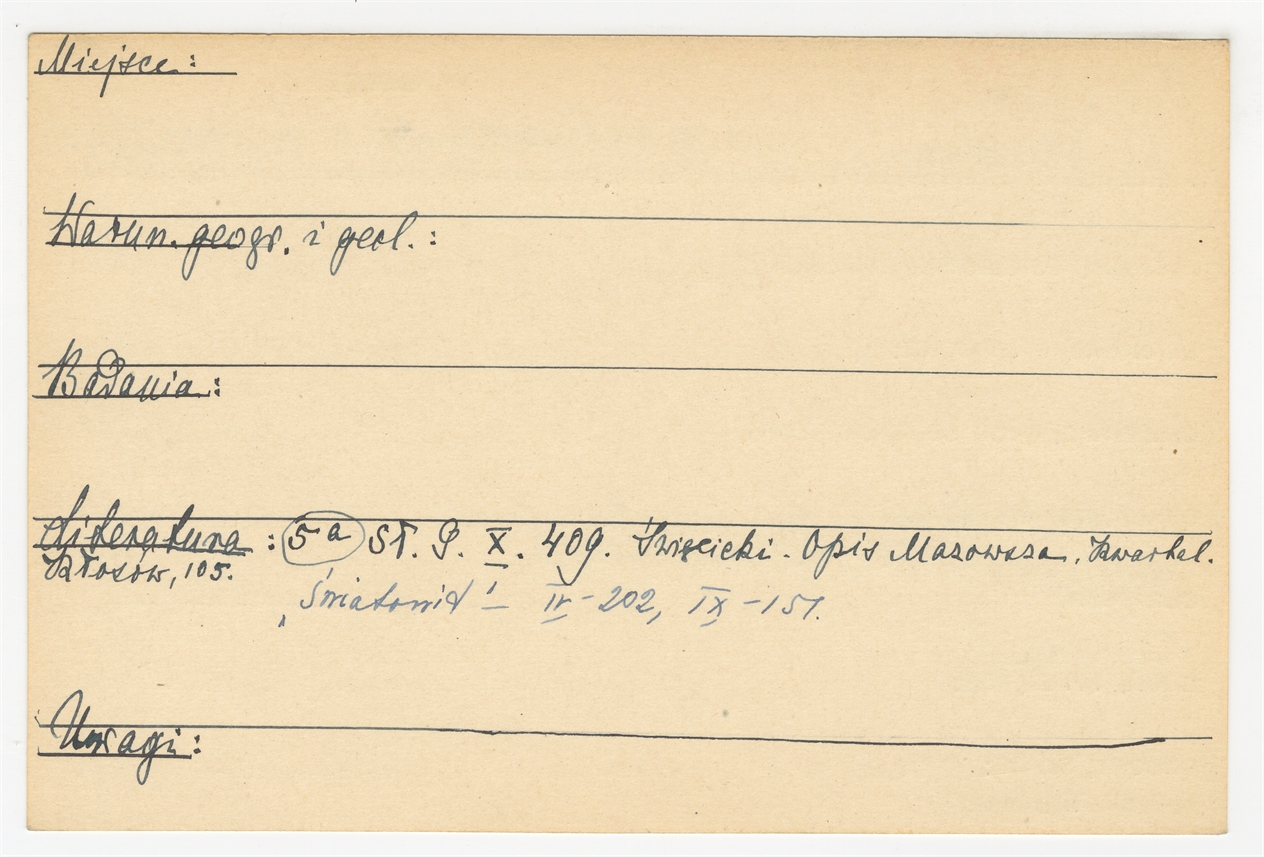 Miejsce:
Warun. geogr. i geol.:
Badania:
Literatura: 5a Sł. G. X. 409. Święcicki. Opis Mazowsza, Kwartal.
Kłosów, 105.
„Światowid" IV - 202, IX - 151.
Uwagi: